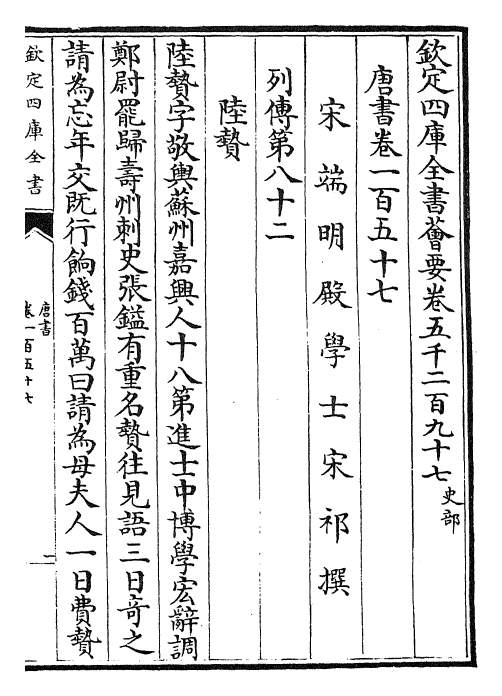 欽定四庫全書薈要卷五千二百九十七史部
唐書卷一百五十七
宋端明殿學士宋祁撰
列傳第八十二
陸贄
陸贄字敬輿蘇州嘉興人十八第進士中博學宏辭調
鄭尉罷歸壽州刺史張鎰有重名贄往見語三日竒之
請為忘年交既行餉錢百萬曰請為母夫人一日費贄
欽定四庫全書
唐書
卷一百五十七
一